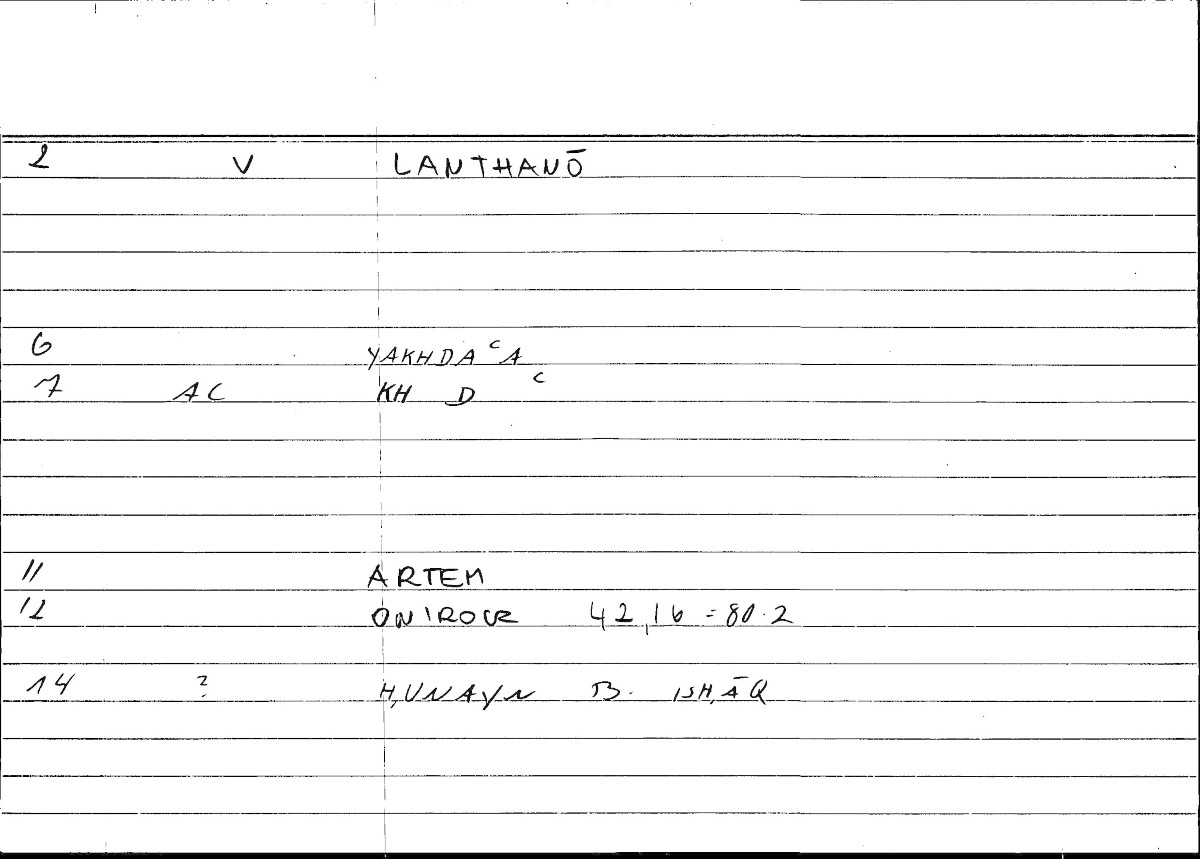 2 V LANTHANŌ
6 YAKHDAʿA
7 AC KH D ʿ
11 ARTEM
12 ONIROCR 42,16 = 80.2
14 ? H,UNAYN B. ISH,ĀQ